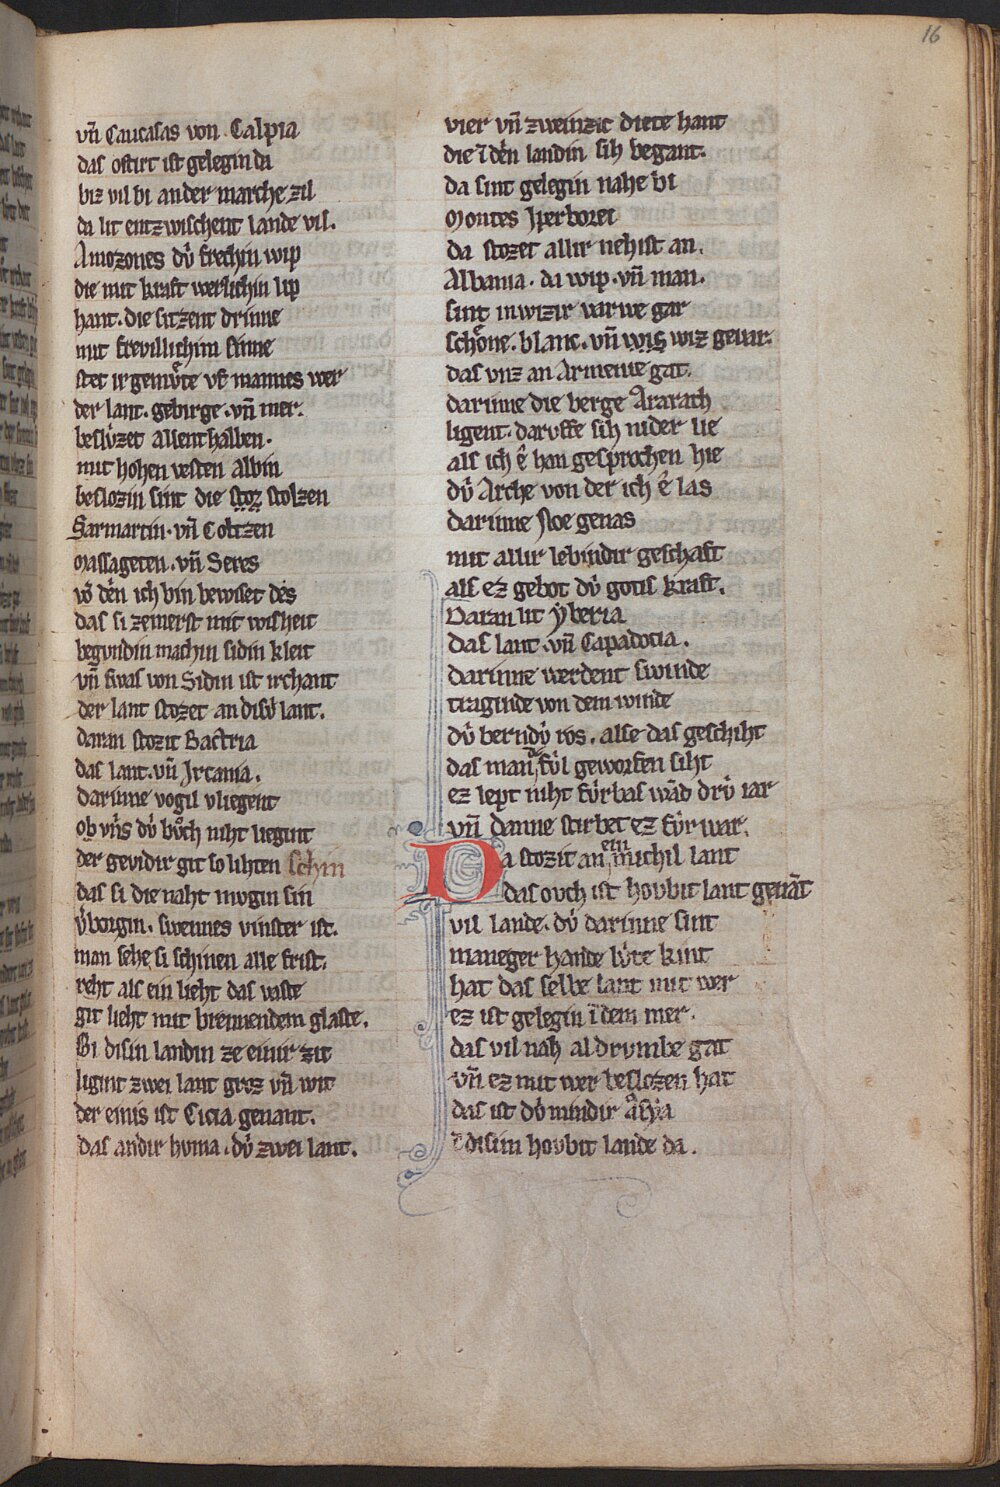 16
vn̄ Caucasas von Caspia
das ostirt ist gelegin da
biz vil bi ander marche zil
da lit entzwischent lande vil.
Amozones dv̍ frechin wip
die mit kraft werlichin lip
hant. die sitzent drinne
mit frevillichim sinne
stet ir gemv̊te vf mannes wer
der lant. gebirge. vn̄ mer.
beslv̍zet allenthalben.
mit hohen vesten albin
beslozin sint die stoz stolzen
Sarmartin. vn̄ Coltzen
Massageten. vn̄ Seres
vō den ich bin bewiset des
das si zemerst mit wisheit
begvndin machin sidin kleit
vn̄ swas von Sidin ist irchant
der lant stozet an disv̍ lant.
daran stozit Bactria
das lant. vn̄ Jrcania.
darinne vogil vliegent
ob vn̍s dv̍ bv̊ch niht liegint
der gevidir git so lihten schin
das si die naht mvgin sin
v̍borgin. swennes vinster ist.
man sehe si schinen alle frist.
reht als ein lieht das vaste
git lieht mit brennendem glaste.
Bi disin landin ze einir zit
ligint zwei lant groz vn̄ wit
der einis ist Cicia genant.
das andir hvnia. dv̍ zwei lant.
vier vn̄ zweinzic diete hant
die ī den landin sih begant.
da sint gelegin nahe bi
Montes Jperborei
da stozet allir nehist an.
Albania. da wip. vn̄ man.
sint inwizir varwe gar
schoͤne. blanc. vn̄ wis wiz gevar.
das vnz an Armenie gat.
darinne die berge Ararach
ligent. darvffe sih nider lie
als ich ê han gesprochen hie
dv̍ Arche von der ich ê las
darinne Noe genas
mit allir lebindir geschaft
als ez gebot dv̍ gotis kraft.
Daran lit ẏberia
das lant. vn̄ Capadocia.
darinne werdent swinde
traginde von dem winde
dv̍ berndv̍ ros. alse das geschiht
das man fv̍l geworfen siht
ez lept niht fv̍rbas wād drv̍ iar
vn̄ danne stirbet ez fv̍r war.
Da stozit an ein michil lant
das ovch ist hovbit lant genāt
vil lande. dv̍ darinne sint
maneger hande lv̍te kint
hat das selbe lant mit wer
ez ist gelegin ī dem mer.
das vil nah al drvmbe gat
vn̄ ez mit wer beslozen hat
das ist dv̍ mindir asẏa
disim hovbit lande da.